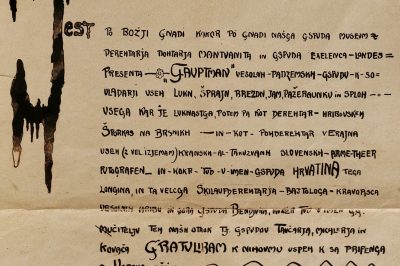 Jest PO BOŽJI GNADI KAKOR PO GNADI NAŠGA GSPUDA MUSEEM=
DEREHTARJA DOHTARJA MANTUANITA in GSPUDA EXELENCA-LONDES=
PRESENTA — "GAUPTMAN" VESOLAH-PADZEMSKA-GSPUDU-K-SO=
VLADARJI VSEH LUKN, ŠPRAJN, BREZDN, JAM, PAŽERAUNKU in SPLOH —
VSEGA KAR JE LUKNASTGA, POTEM PA KOT DEREHTAR-HRIBOUSKEH
NA BRSNIKEH — IN-KOT-PODDEREHTAR VERAJNA
VSEH (Z VEL IZJEMAM) KRANSKH-AL-TAKUZVANH SLOVENSKH-ARME-THEER
FUTOGRAFEN_ IN-KOKR-TUD-V-IMEN-GSPUDA HRVATINA TEGA
LONGINA, in TA VELCGA SKILAUFDEREHTARJA-BAZTOLOGA-KRAVORSCA
VESELNEH HRIBU in GORA GSPUDA BENDININA,
VOUČITELJU TEH NAŠIH OTROK TJ. GSPUDOV TANČARJA, MICHLERJA in
KOVAČA GRATULIRAM K NIHOVMU USPEH K SA PRIFENGA